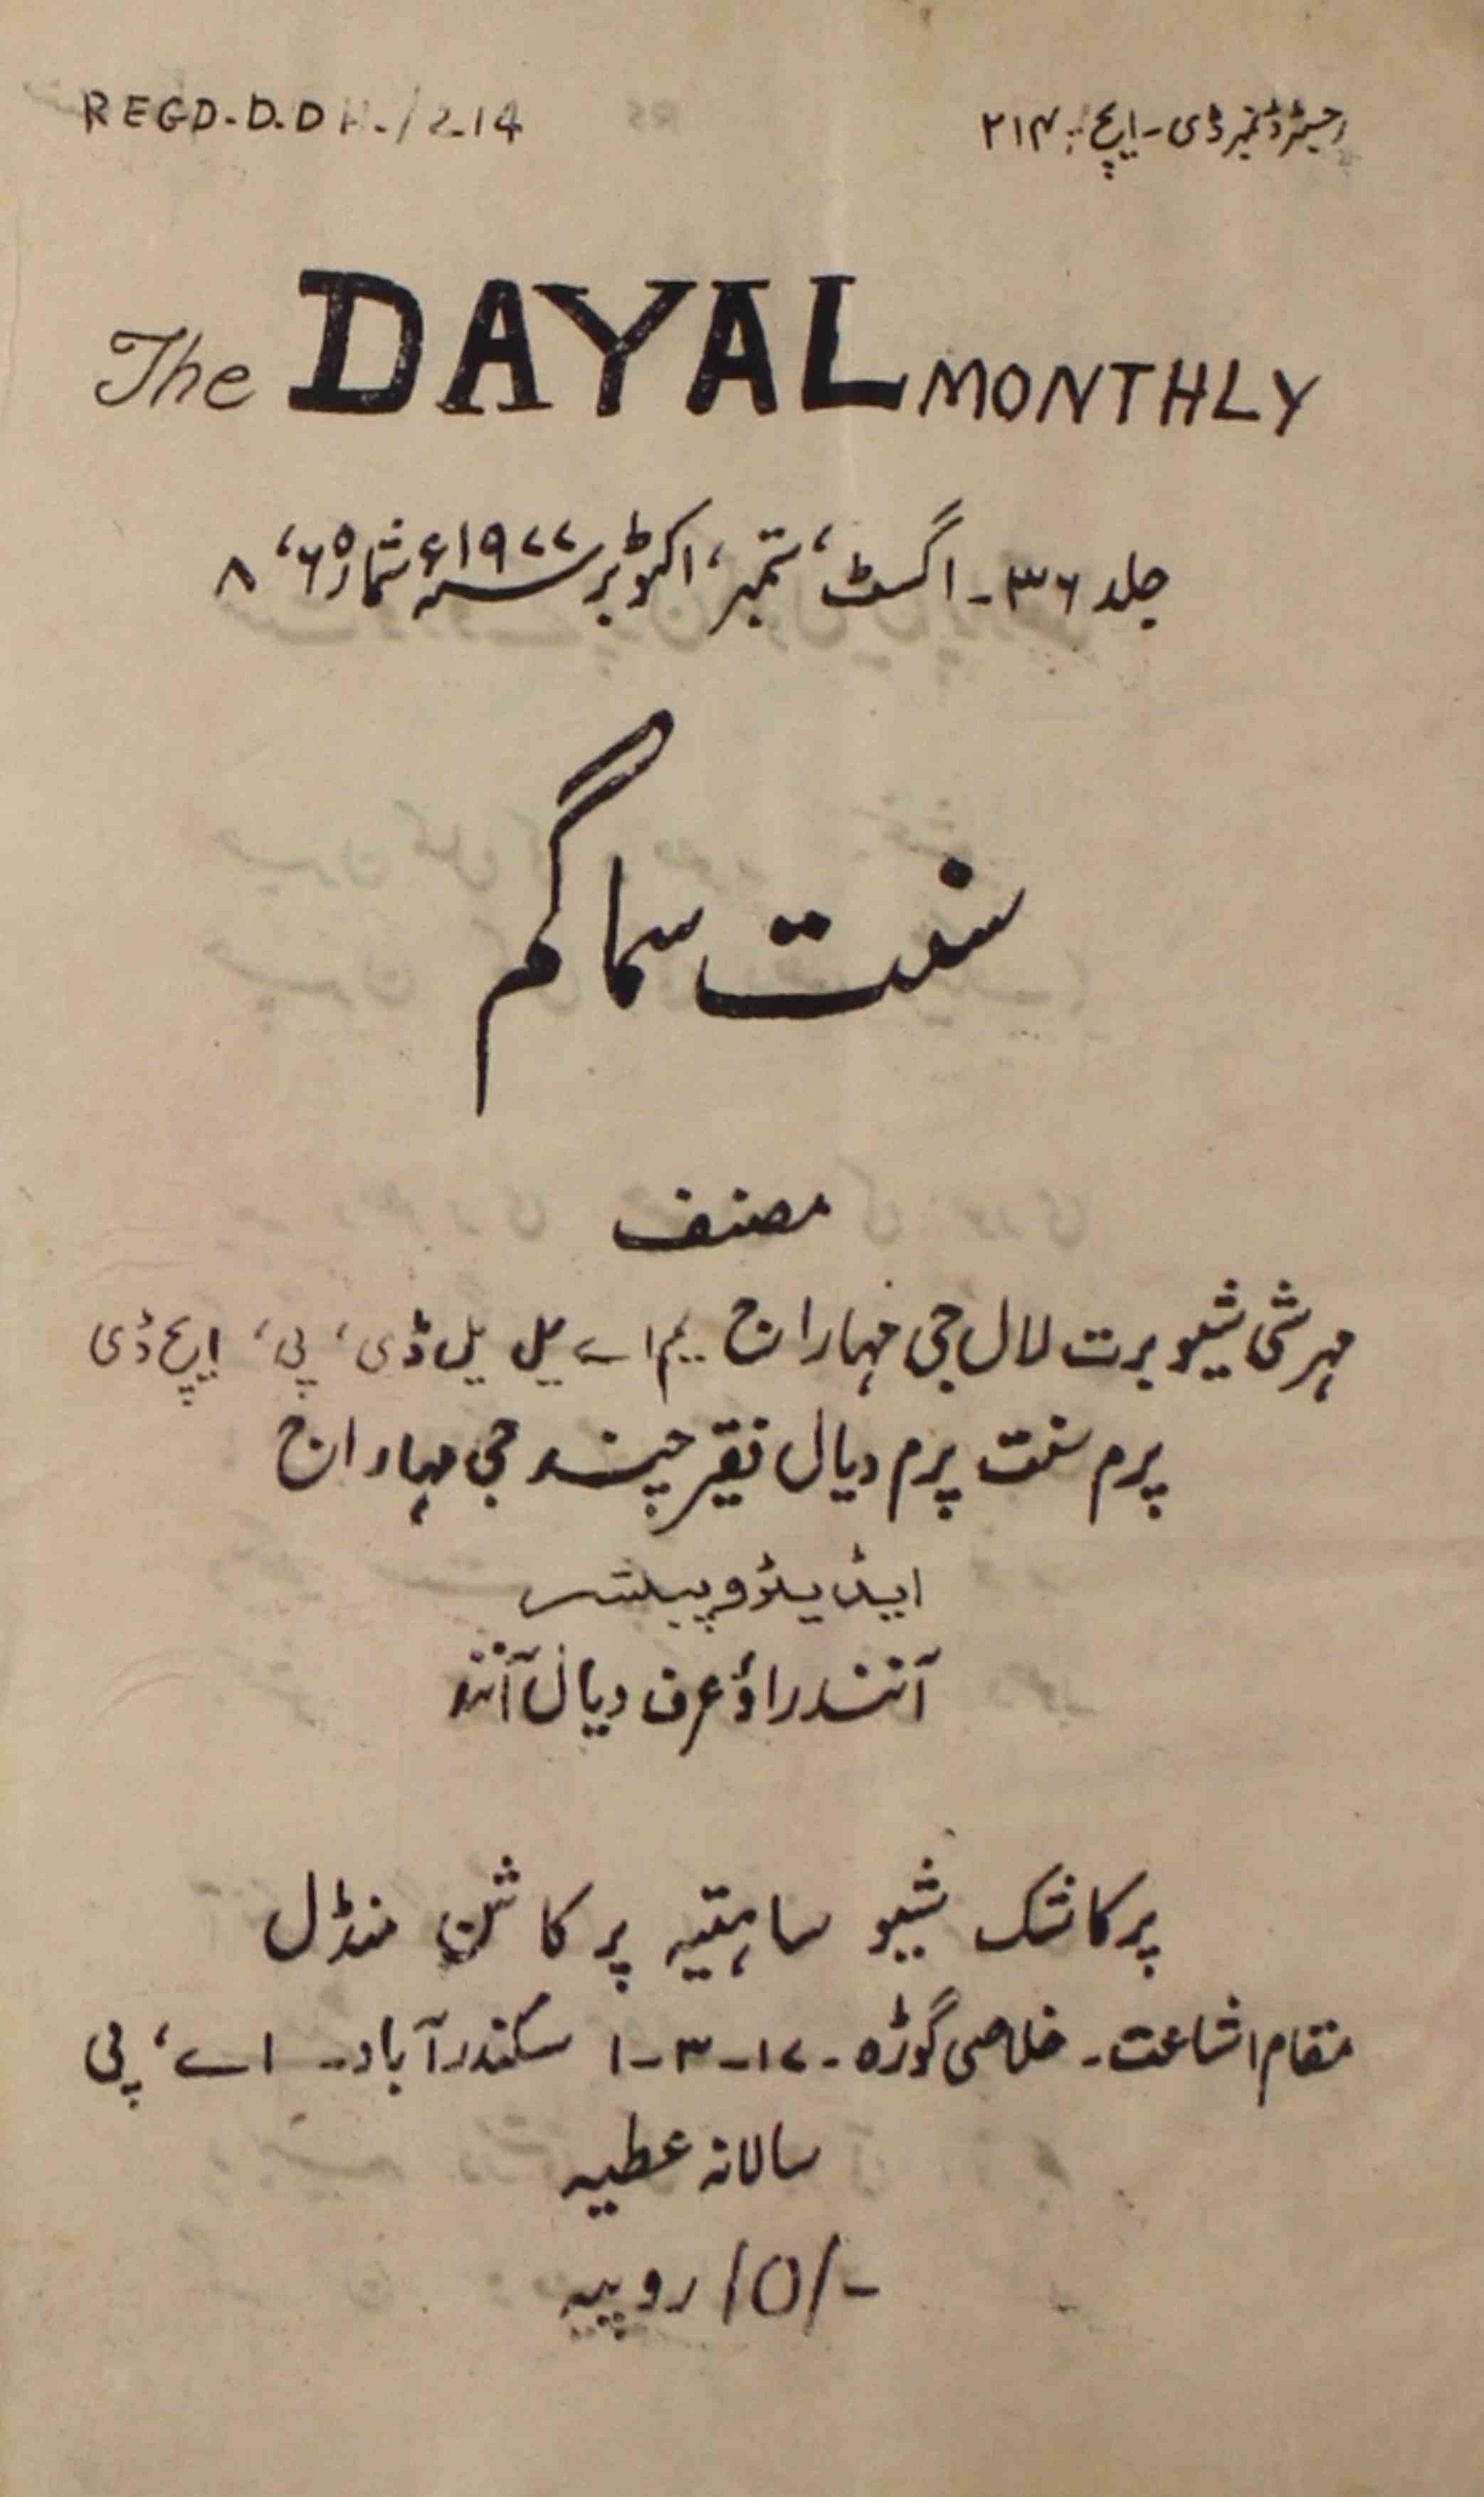 REGD. D. D H. / 214
رجسٹرڈ نمبر ڈی۔ ایچ : ۲۱۴
The DAYAL MONTHLY
جلد ۳۶ ۔ اگسٹ، ستمبر، اکتوبر سنہ ۱۹۷۷ء شمارہ ۶، ۸
سنت سماگم
مصنف
مہرشی شیو برت لال جی مہاراج یم اے یل یل ڈی، پی، ایچ ڈی
پرم سنت پرم دیال فقیر چند جی مہاراج
ایڈیٹر و پبلشر
آنند راؤ عرف دیال آنند
پرکاشک شیو ساہتیہ پرکاشن منڈل
مقام اشاعت ۔ خلاصی گوڑہ ۔ ۱۷ ۔ ۳ ۔ ۱ سکندرآباد ۔ اے، پی
سالانہ عطیہ
10/- روپیہ